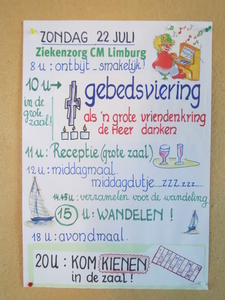 ZONDAG 22 JULI
Ziekenzorg CM Limburg
8 u : ontbijt - smakelijk!
10 u → gebedsviering
in de grote zaal!
als 'n grote vriendenkring
de Heer danken
11 u : Receptie (grote zaal)
12 u : middagmaal
middagdutje ...zzz...zzz...
14.45 u : verzamelen voor de wandeling
15 u : WANDELEN !
18 u : avondmaal
20 u : KOM KIENEN
in de zaal !